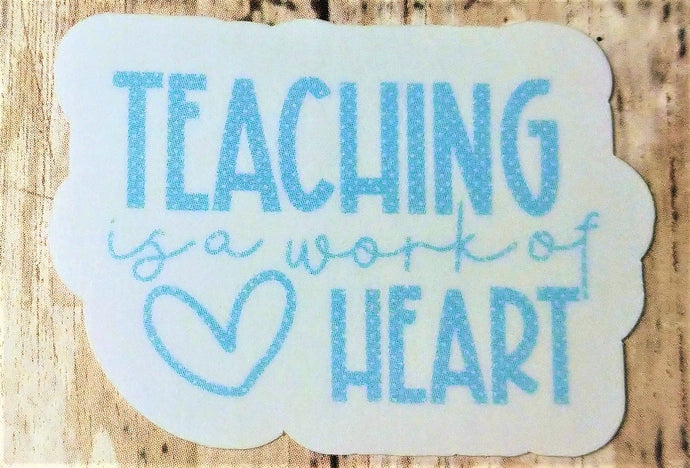 TEACHING
is a work of
HEART